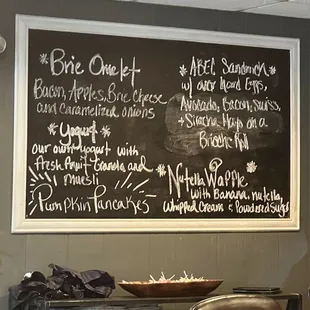 *Brie Omelet
Bacon, Apples, Brie Cheese
and Caramelized onions
*Yogurt*
our own yogurt with
fresh fruit Granola and
muesli
Pumpkin Pancakes
*ABEC Sandwich*
w/ over Hard Eggs,
Avocado, Bacon, Swiss,
+ Siracha Mayo on a
Brioche Roll
*Nutella Waffle*
with Banana, nutella,
Whipped Cream & Powdered Sugar